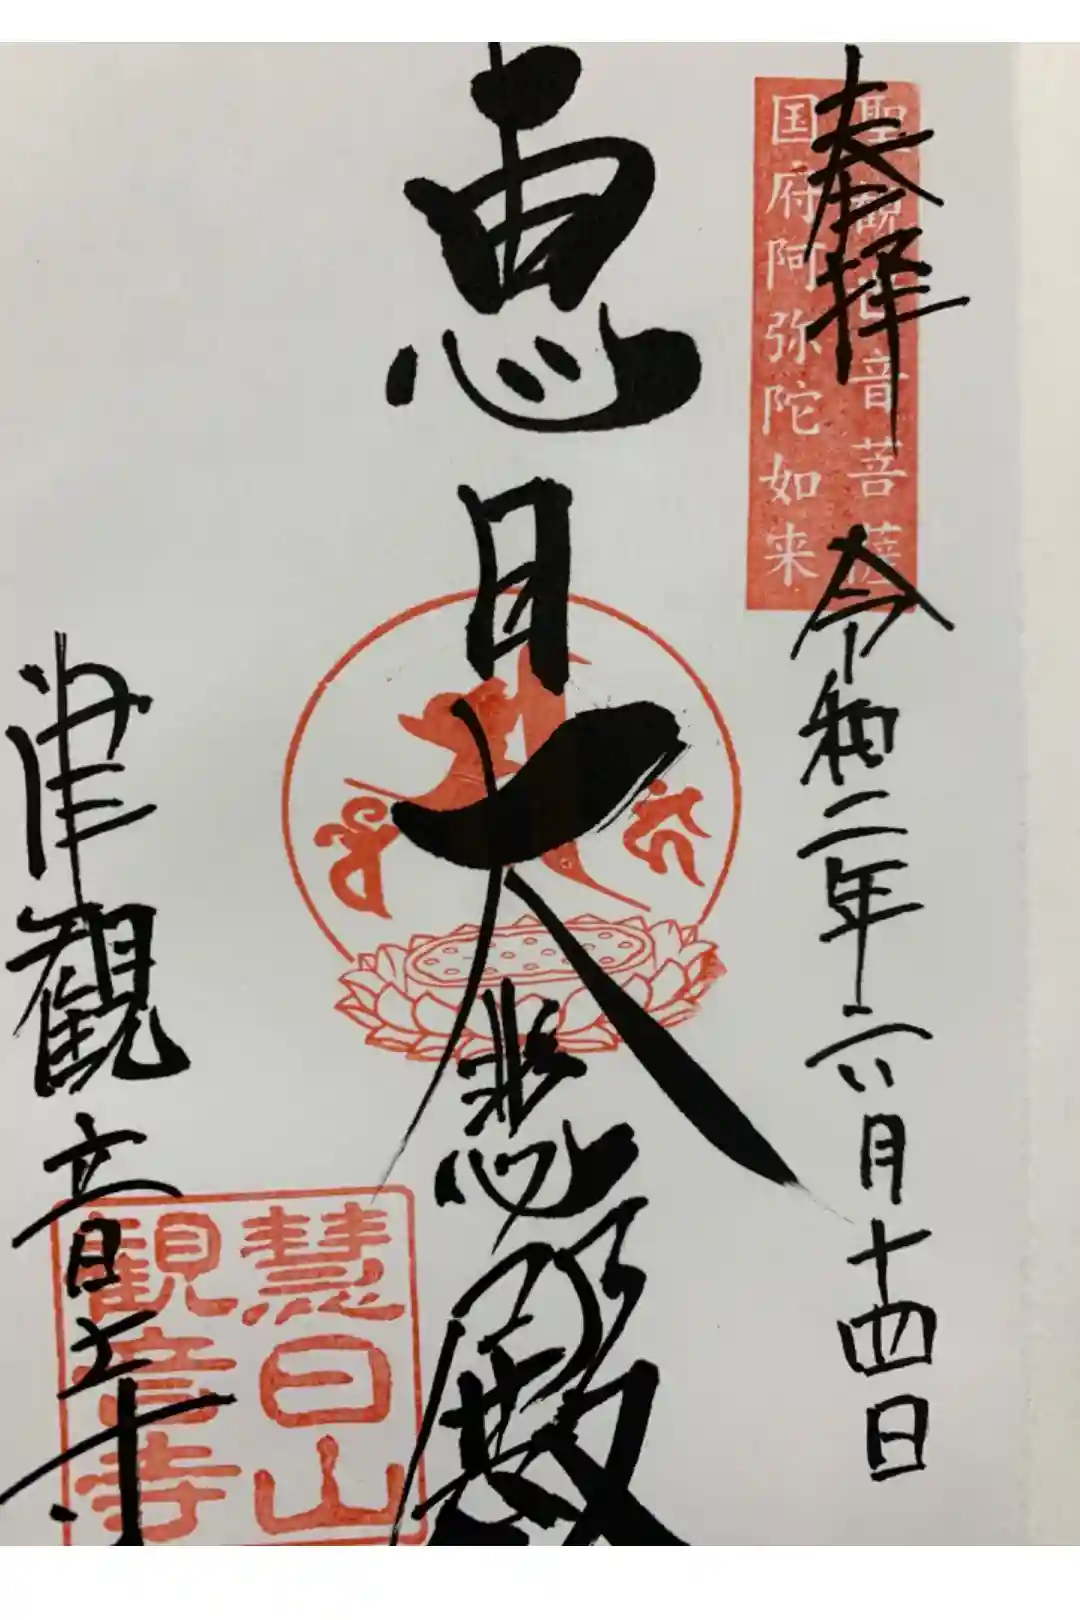 奉拝
聖観世音菩薩
国府阿弥陀如来
令和二年六月十四日
恵日大悲殿
津観音寺
慧日山
観音寺